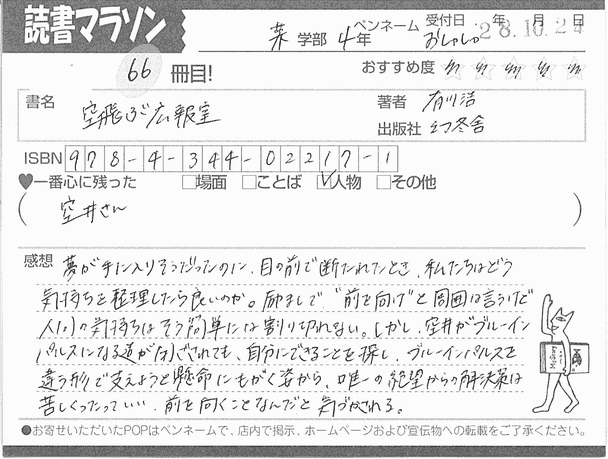 読書マラソン
薬 学部 4年 ペンネーム おしゃしゃ 受付日 28.10.24 年 月 日
66 冊目!
おすすめ度 ☆☆☆☆☆
書名 空飛ぶ広報室
著者 有川浩
出版社 幻冬舎
ISBN 978-4-344-02217-1
♥一番心に残った □場面 □ことば ☑人物 □その他
(空井さん)
感想 夢が手に入りそうだったのに、目の前で断たれたとき、私たちはどう
気持ちを整理したら良いのか。励まして"前を向け"と周囲は言うけど
人の気持ちはそう簡単には割り切れない。しかし、空井がブルーイン
パルスになる道が閉ざされても、自分にできることを探し、ブルーインパルスを
違う形で支えようと懸命にもがく姿から、唯一の絶望からの解決策は
苦しくったっていい、前を向くことなんだと気づかされる。
●お寄せいただいたPOPはペンネームで、店内で掲示、ホームページおよび宣伝物への転載をご了承ください。